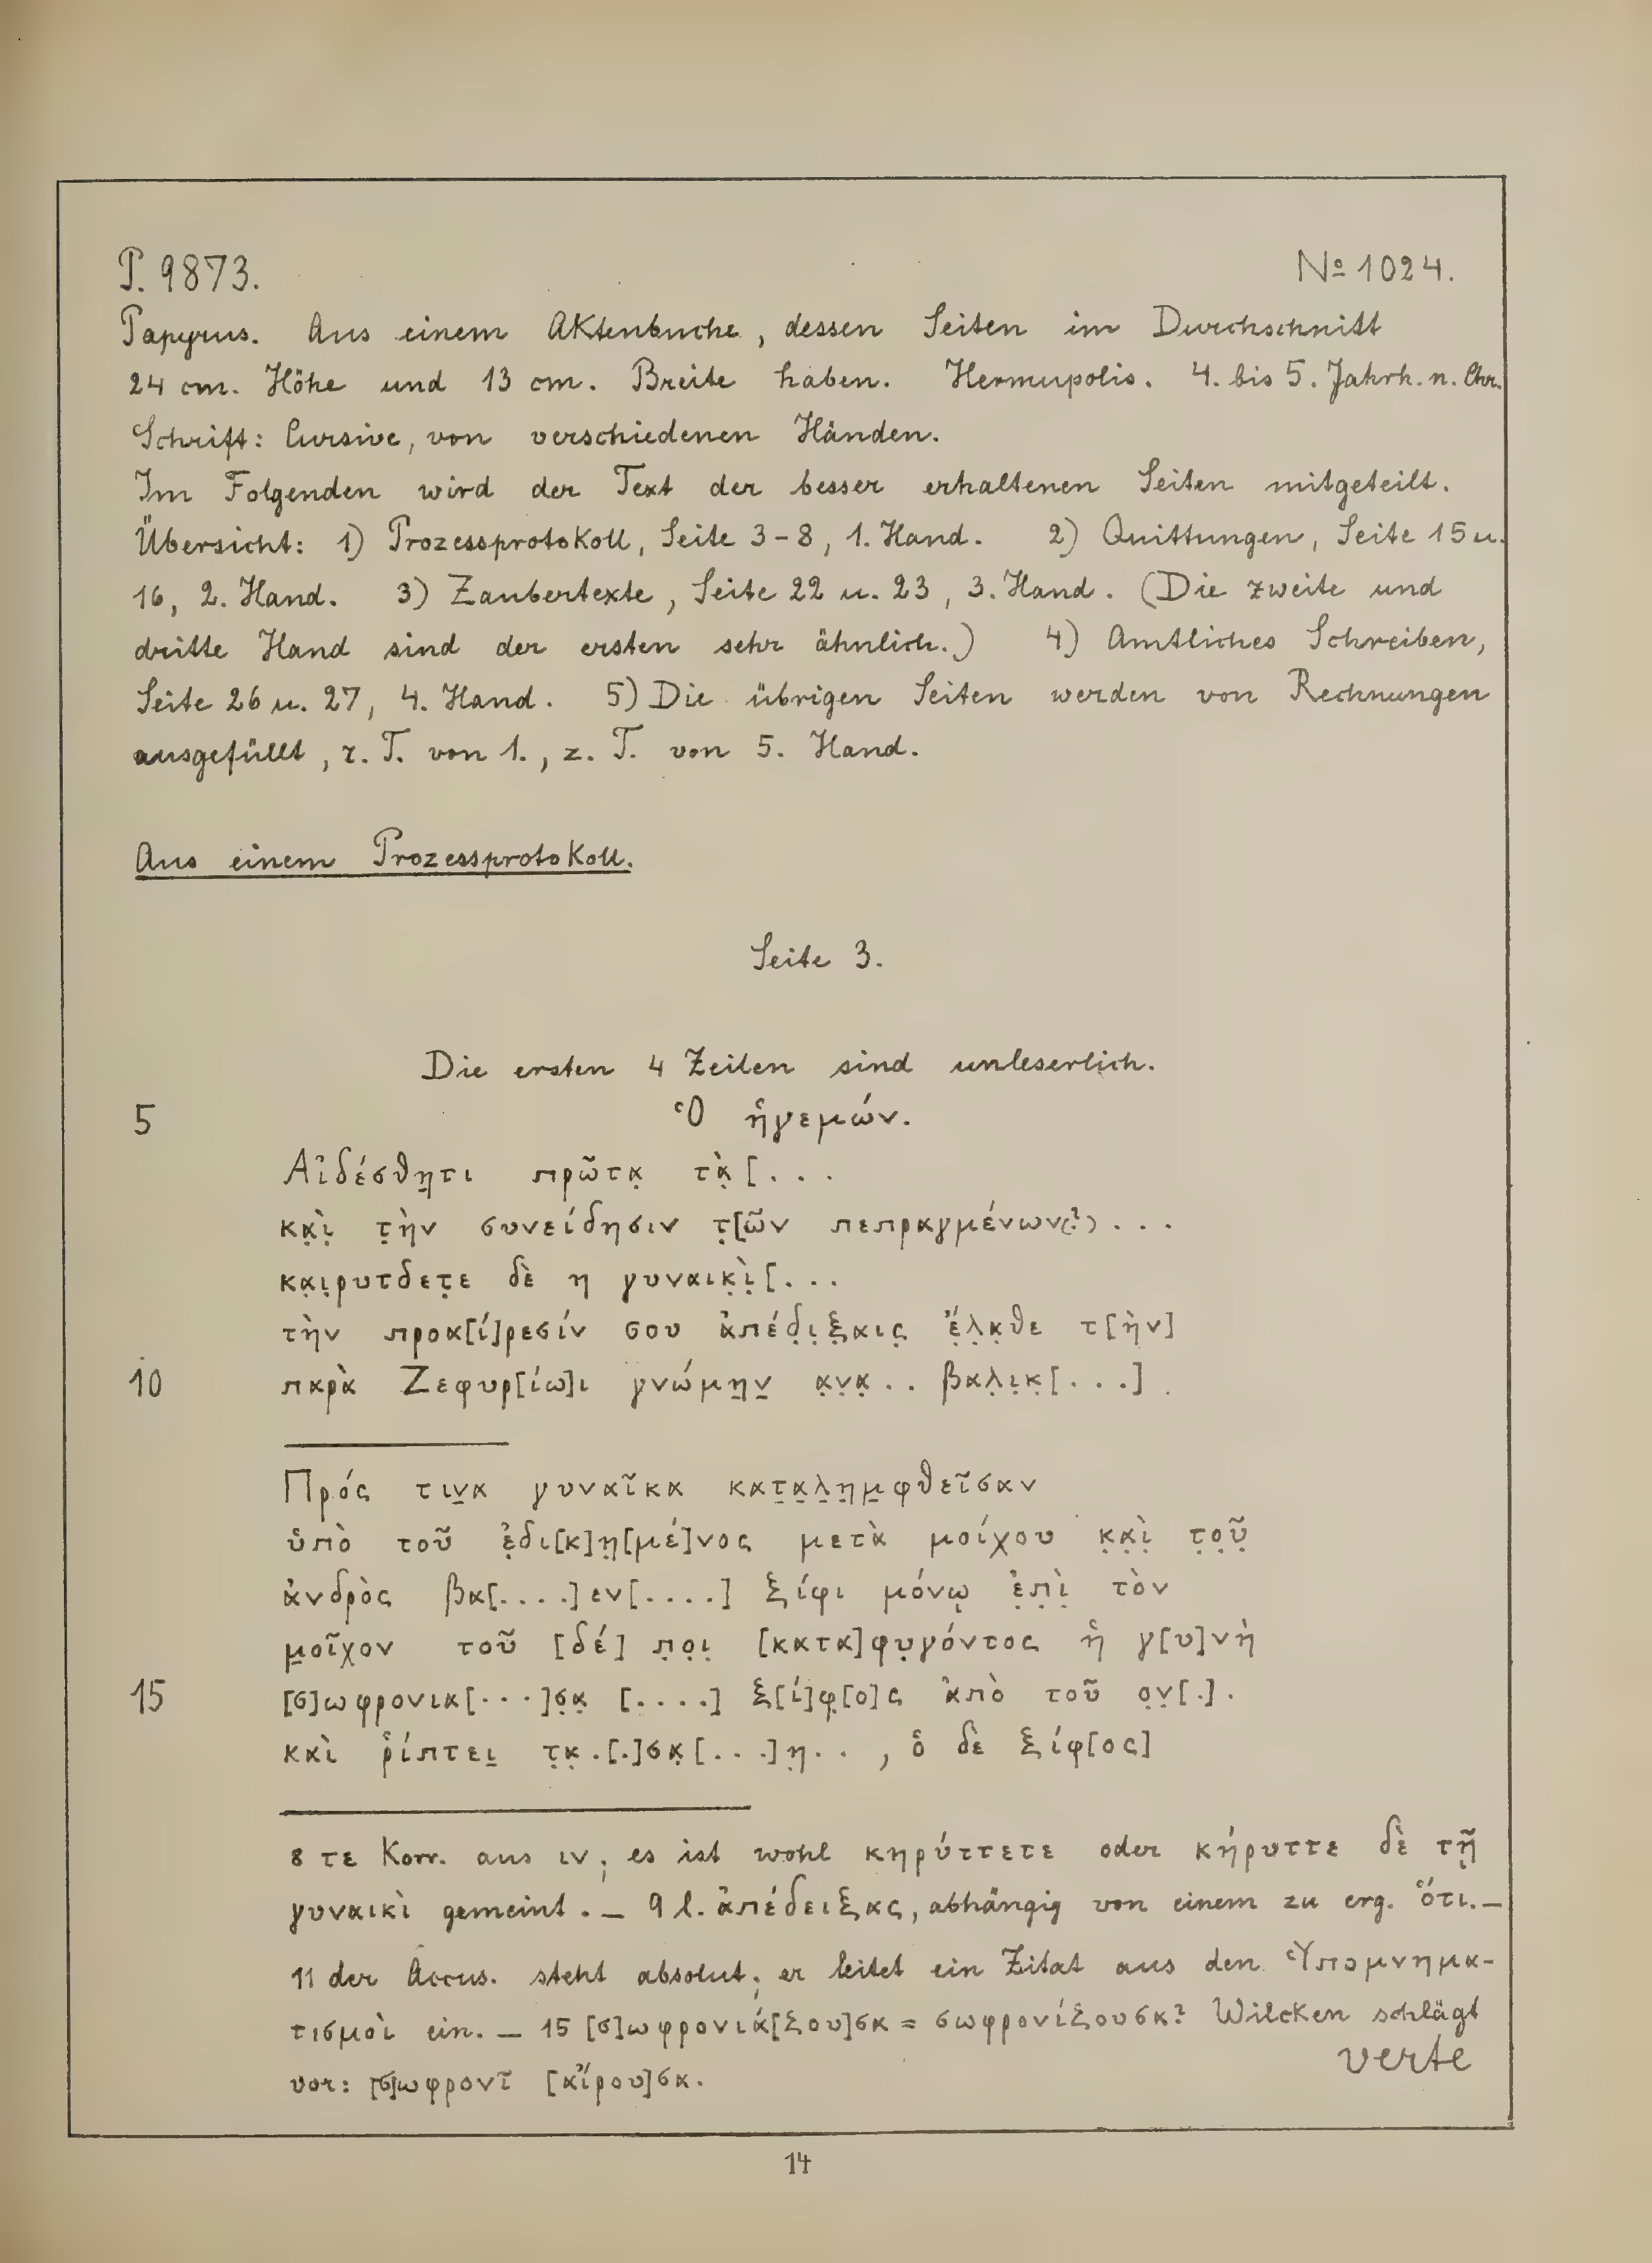 P. 9873. № 1024.
Papyrus. Aus einem Aktenbuche, dessen Seiten im Durchschnitt
24 cm. Höhe und 13 cm. Breite haben. Hermupolis. 4. bis 5. Jahrh. n. Chr.
Schrift: Cursive, von verschiedenen Händen.
Im Folgenden wird der Text der besser erhaltenen Seiten mitgeteilt.
Übersicht: 1) Prozessprotokoll, Seite 3-8, 1. Hand. 2) Quittungen, Seite 15 u.
16, 2. Hand. 3) Zaubertexte, Seite 22 u. 23, 3. Hand. (Die zweite und
dritte Hand sind der ersten sehr ähnlich.) 4) Amtliches Schreiben,
Seite 26 u. 27, 4. Hand. 5) Die übrigen Seiten werden von Rechnungen
ausgefüllt, z. T. von 1., z. T. von 5. Hand.
Aus einem Prozessprotokoll.
Seite 3.
Die ersten 4 Zeilen sind unleserlich.
5 Ὁ ἡγεμών.
Αἰδέσθη̣τι πρῶτα̣ τὰ̣ [. . .
κα̣ὶ̣ τ̣ὴν συνείδησιν τ̣[ῶν πεπραγμένων(?) . . .
κα̣ι̣ρυτδετ̣ε δὲ η γυναικ̣ὶ̣ [. . .
τὴν προα[ί]ρεσίν σου ἀπέδ̣ι̣ξ̣αις̣ ἔ̣λ̣α̣θε τ[ὴν]
10 παρὰ Ζεφυρ[ίω]ι γνώμη̣ν̣ α̣ν̣α̣ . . βαλ̣ι̣κ̣[. . .]
Πρός τιν̣α γυναῖκα κατ̣α̣λ̣η̣μ̣φθεῖσαν
ὑπὸ τοῦ ἐ̣δι[κ]η̣[μέ]νος μετὰ μοίχου κ̣α̣ὶ̣ τ̣ο̣ῦ̣
ἀνδρὸς βα[. . . .]εν[. . . .] ξίφι μόνῳ ἐ̣π̣ὶ̣ τὸν
μ̣οῖχον τοῦ [δέ] π̣ο̣ι̣ [κατα]φυ̣γόντος ἡ γ[υ]νὴ
15 [σ]ωφρονια[. . .]σ̣α̣ [. . . .] ξ[ί]φ̣[ο]ς ἀπὸ τοῦ ο̣ν̣[.] .
καὶ ῥίπτει̣ τ̣α̣ . [.]σα̣[. . .]η̣ . . , ὁ δὲ ξίφ[ος]
8 τε Korr. aus ιν; es ist wohl κηρύττετε oder κήρυττε δὲ τῇ
γυναικὶ gemeint. — 9 l. ἀπέδειξας, abhängig von einem zu erg. ὅτι. —
11 der Accus. steht absolut; er leitet ein Zitat aus den Ὑπομνημα-
τισμοὶ ein. — 15 [σ]ωφρονιά[ξου]σα = σωφρονίξουσα? Wilcken schlägt
vor: [σ]ωφρονῖ [αἴρου]σα.
verte
14